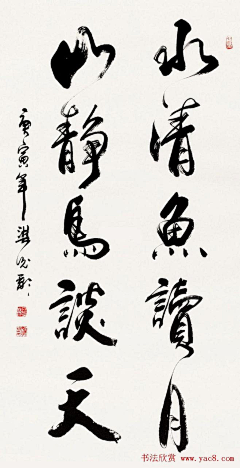 水清魚讀月
山静鳥談天
庚寅年淇
书法欣赏
www.yac8.com